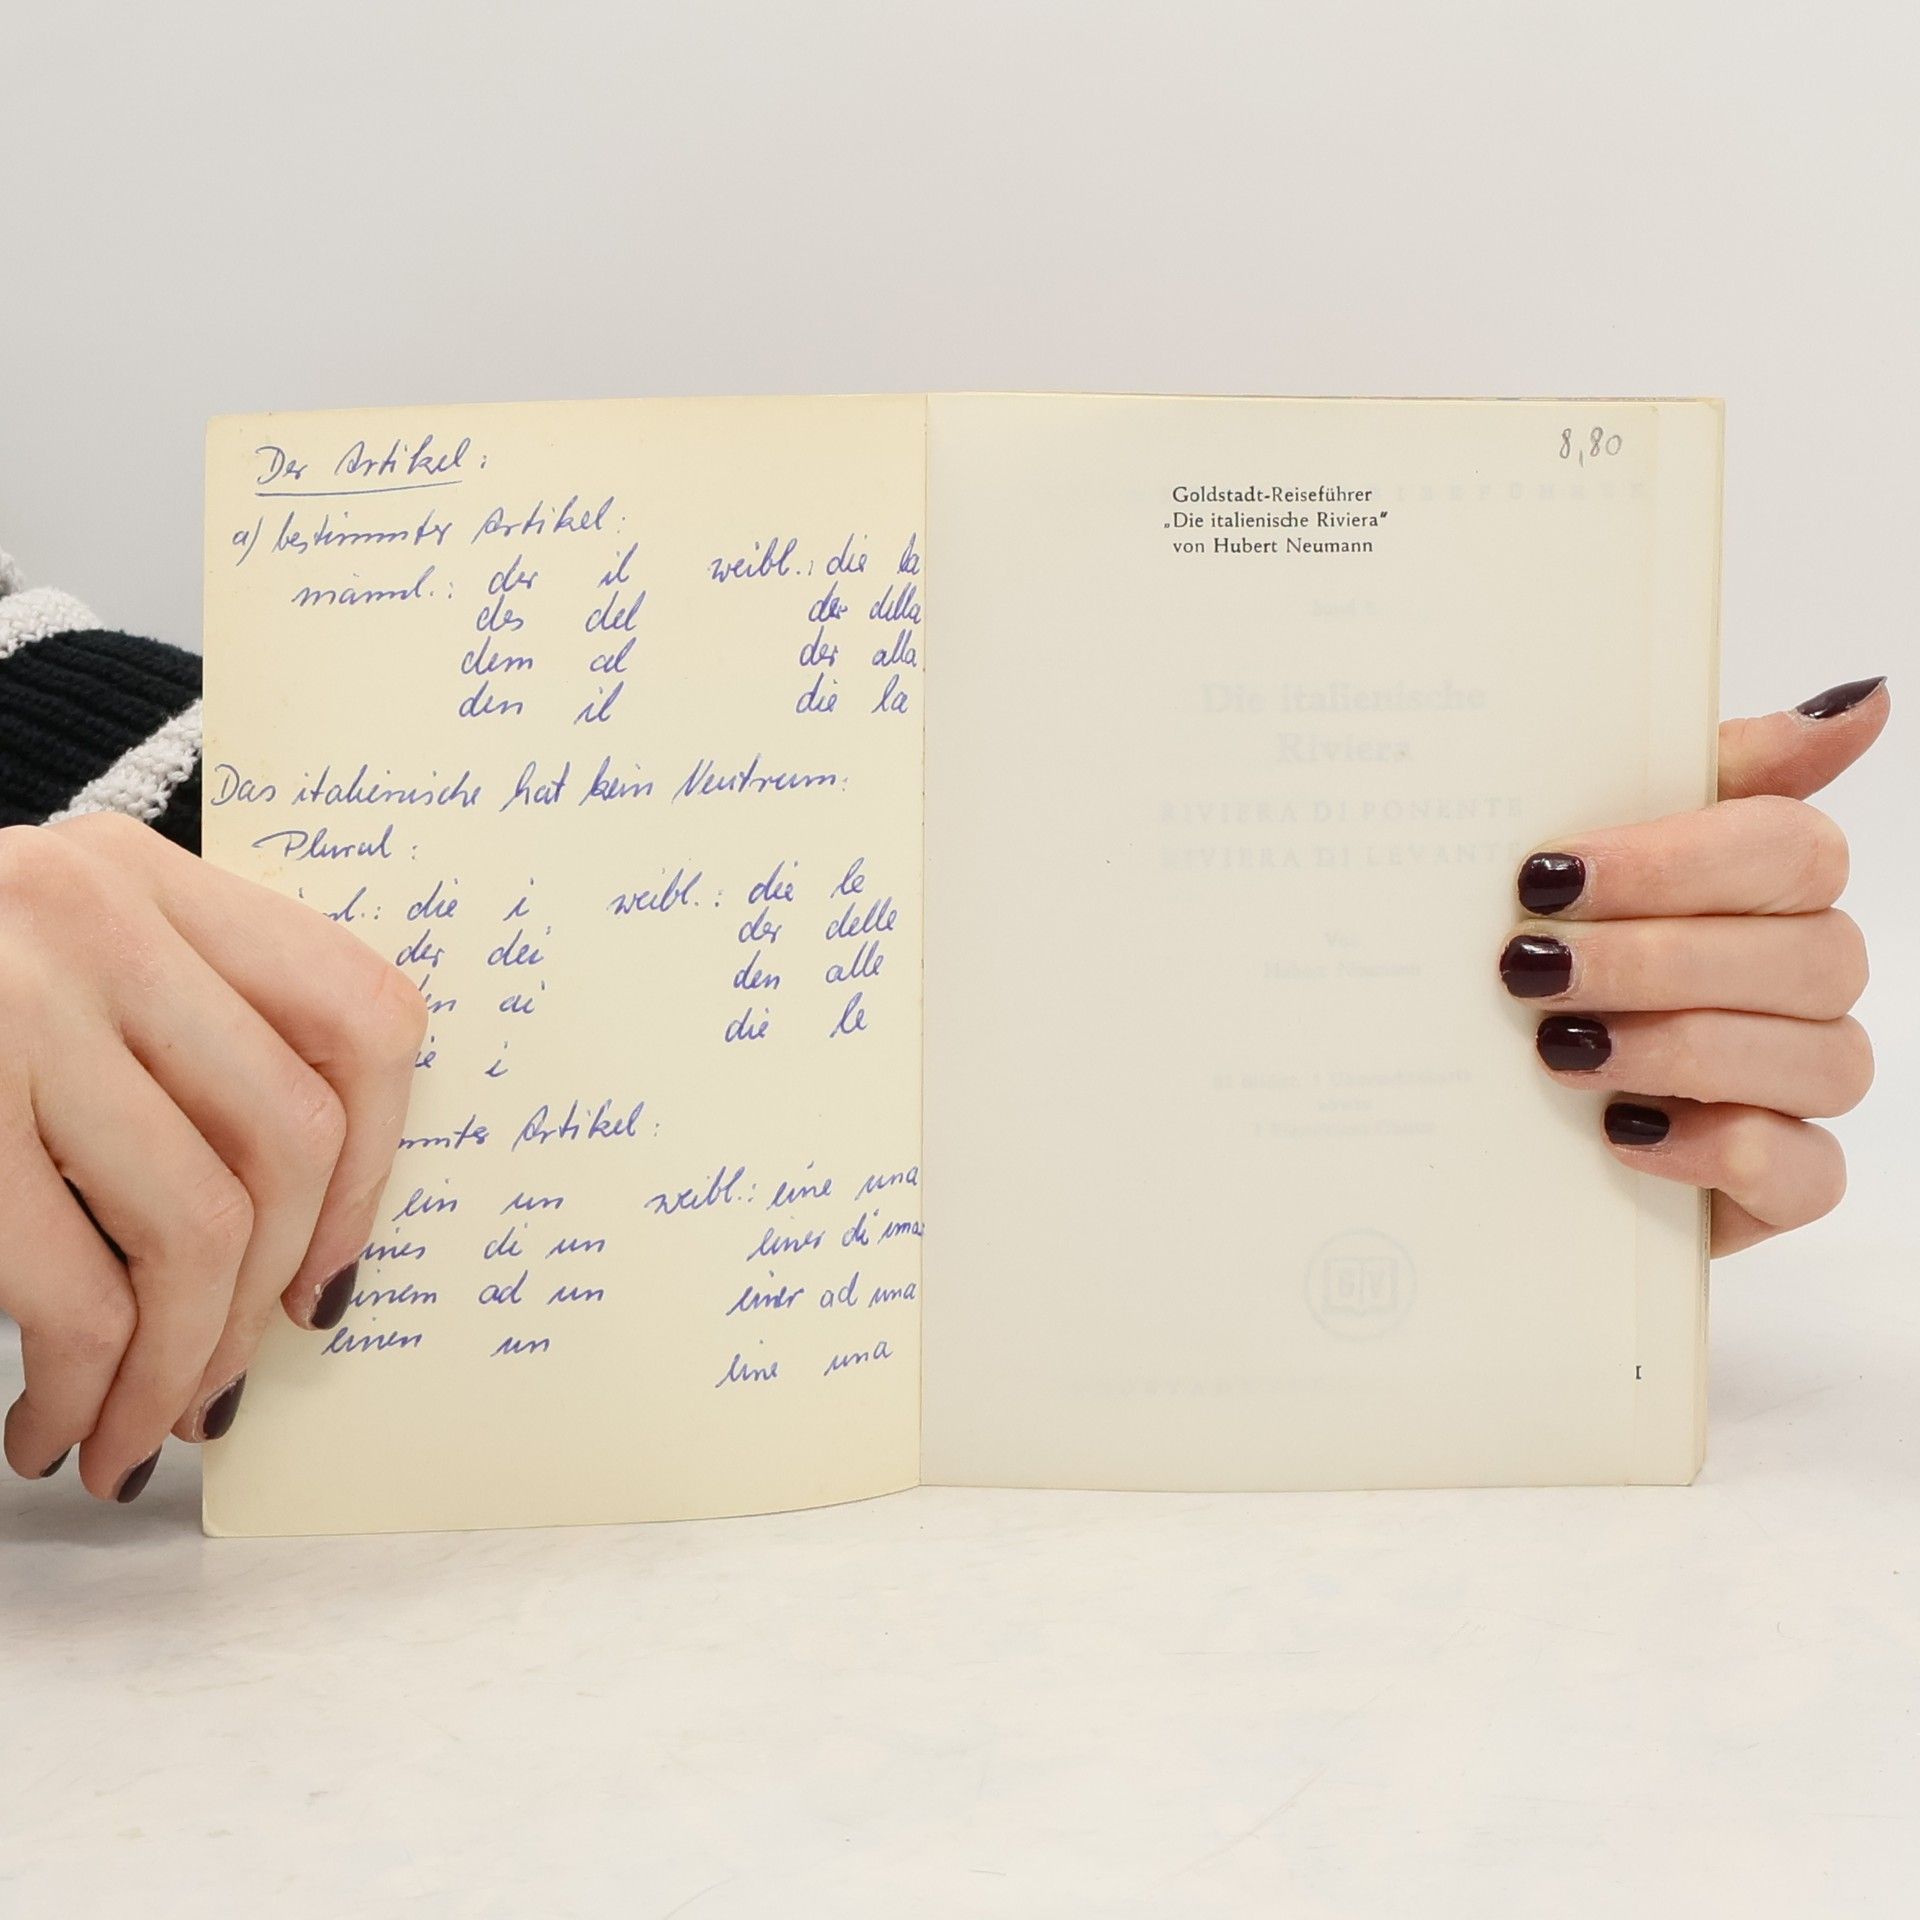 Der Artikel:
a) bestimmter Artikel:
männl.: der il weibl.: die la
des del der della
dem al der alla
den il die la
Das italienische hat kein Neutrum:
Plural:
die i weibl.: die le
der dei der delle
ai den alle
i die le
Artikel:
ein un weibl.: eine una
di un einer di una
ad un einer ad una
einen un eine una
8,80
Goldstadt-Reiseführer
„Die italienische Riviera“
von Hubert Neumann
Die italienische
Riviera
RIVIERA DI PONENTE
RIVIERA DI LEVANTE
GV
I